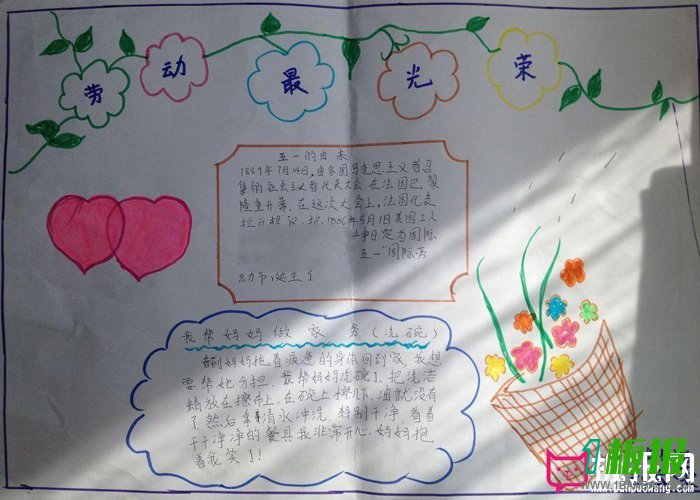 劳动最光荣
五一的由来
1889年7月14日,由各国马克思主义者召
集的社会主义者代表大会,在法国巴黎
隆重开幕,在这次大会上,法国代表
拉古提议,把,1886年5月1日美国工人
争日定为国际
五一"国际劳
动节"诞生了
我帮妈妈做家务(洗碗)
看到妈妈拖着疲惫的身体回到家,我想
要帮她分担.我帮妈妈洗碗了.把洗洁
精放在擦布上,在碗上擦几下,油就没有
了.然后拿清水冲洗,特别干净,看着
干干净净的餐具我非常开心.妈妈抱
着我笑了!
1板报网